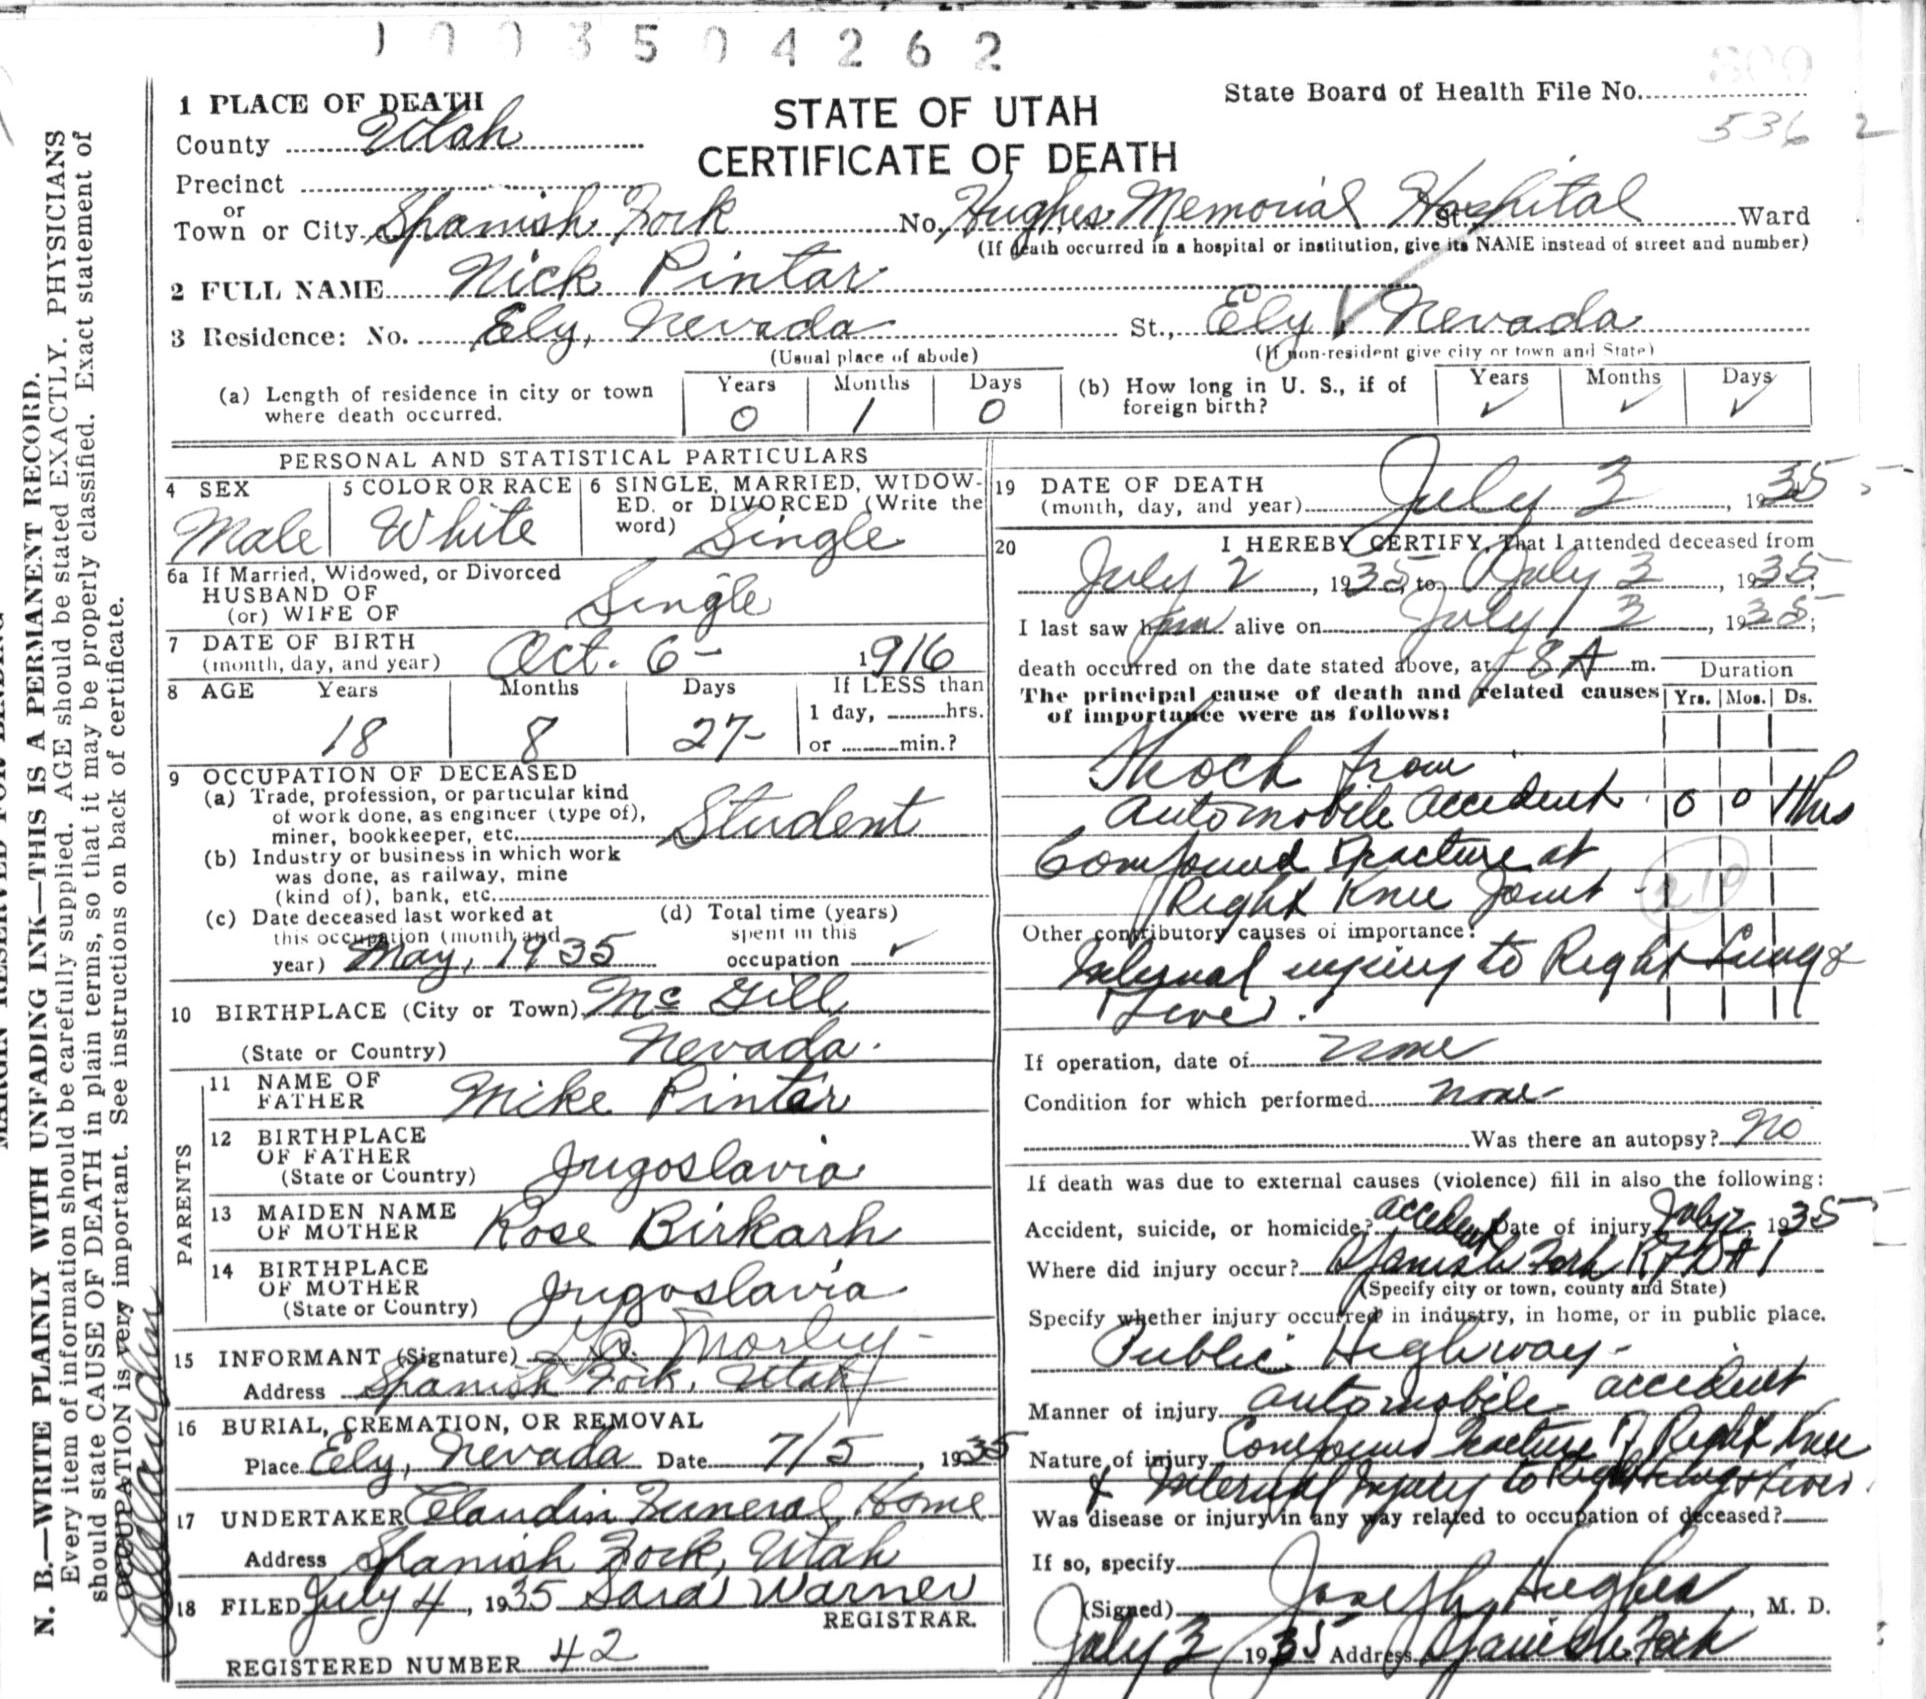 1003504262
1 PLACE OF DEATH
County Utah
Precinct
or
Town or City Spanish Fork No. Hughes Memorial Hospital St. Ward
(If death occurred in a hospital or institution, give its NAME instead of street and number)
STATE OF UTAH
CERTIFICATE OF DEATH
State Board of Health File No.
536 2
2 FULL NAME Nick Pintar
3 Residence: No. Ely, Nevada St., Ely Nevada
(Usual place of abode) (If non-resident give city or town and State)
(a) Length of residence in city or town where death occurred. Years 0 Months 1 Days 0
(b) How long in U. S., if of foreign birth? Years ✓ Months ✓ Days ✓
PERSONAL AND STATISTICAL PARTICULARS
4 SEX
Male
5 COLOR OR RACE
White
6 SINGLE, MARRIED, WIDOW-
ED. or DIVORCED (Write the
word) Single
6a If Married, Widowed, or Divorced
HUSBAND OF
(or) WIFE OF Single
7 DATE OF BIRTH
(month, day, and year) Oct. 6- 1916
8 AGE Years Months Days If LESS than
18 8 27- 1 day, hrs.
or min.?
9 OCCUPATION OF DECEASED
(a) Trade, profession, or particular kind
of work done, as engineer (type of),
miner, bookkeeper, etc. Student
(b) Industry or business in which work
was done, as railway, mine
(kind of), bank, etc.
(c) Date deceased last worked at
this occupation (month and
year) May, 1935
(d) Total time (years)
spent in this
occupation ✓
10 BIRTHPLACE (City or Town) McGill
(State or Country) Nevada.
PARENTS
11 NAME OF
FATHER Mike Pintar
12 BIRTHPLACE
OF FATHER
(State or Country) Jugoslavia
13 MAIDEN NAME
OF MOTHER Rose Birkarh
14 BIRTHPLACE
OF MOTHER
(State or Country) Jugoslavia
15 INFORMANT (Signature) Morley
Address Spanish Fork, Utah
16 BURIAL, CREMATION, OR REMOVAL
Place Ely, Nevada Date 7/5, 1935
17 UNDERTAKER Claudin Funeral Home
Address Spanish Fork, Utah
18 FILED July 4, 1935 Sara Warner
REGISTRAR.
REGISTERED NUMBER 42
19 DATE OF DEATH
(month, day, and year) July 3, 1935
20 I HEREBY CERTIFY, That I attended deceased from
July 2, 1935, to July 3, 1935;
I last saw him alive on July 3, 1935;
death occurred on the date stated above, at 8 A m.
Duration
The principal cause of death and related causes
of importance were as follows: Yrs. Mos. Ds.
Shock from
Automobile accident 0 0 11 hrs
Compound Fracture at
Right Knee Joint
210
Other contributory causes of importance:
Internal injury to Right Lung &
Liver.
If operation, date of none
Condition for which performed none
Was there an autopsy? No
If death was due to external causes (violence) fill in also the following:
Accident, suicide, or homicide? accident Date of injury July 2, 1935
Where did injury occur? Spanish Fork RFD #1
(Specify city or town, county and State)
Specify whether injury occurred in industry, in home, or in public place.
Public Highway-
Manner of injury Automobile accident
Nature of injury Compound fracture of Right Knee
& Internal Injury to Right Lung & Liver.
Was disease or injury in any way related to occupation of deceased?
If so, specify
(Signed) Joseph Hughes, M. D.
July 3 1935 Address Spanish Fork
MARGIN RESERVED FOR BINDING
N. B.—WRITE PLAINLY WITH UNFADING INK—THIS IS A PERMANENT RECORD.
Every item of information should be carefully supplied. AGE should be stated EXACTLY. PHYSICIANS
should state CAUSE OF DEATH in plain terms, so that it may be properly classified. Exact statement of
OCCUPATION is very important. See instructions on back of certificate.